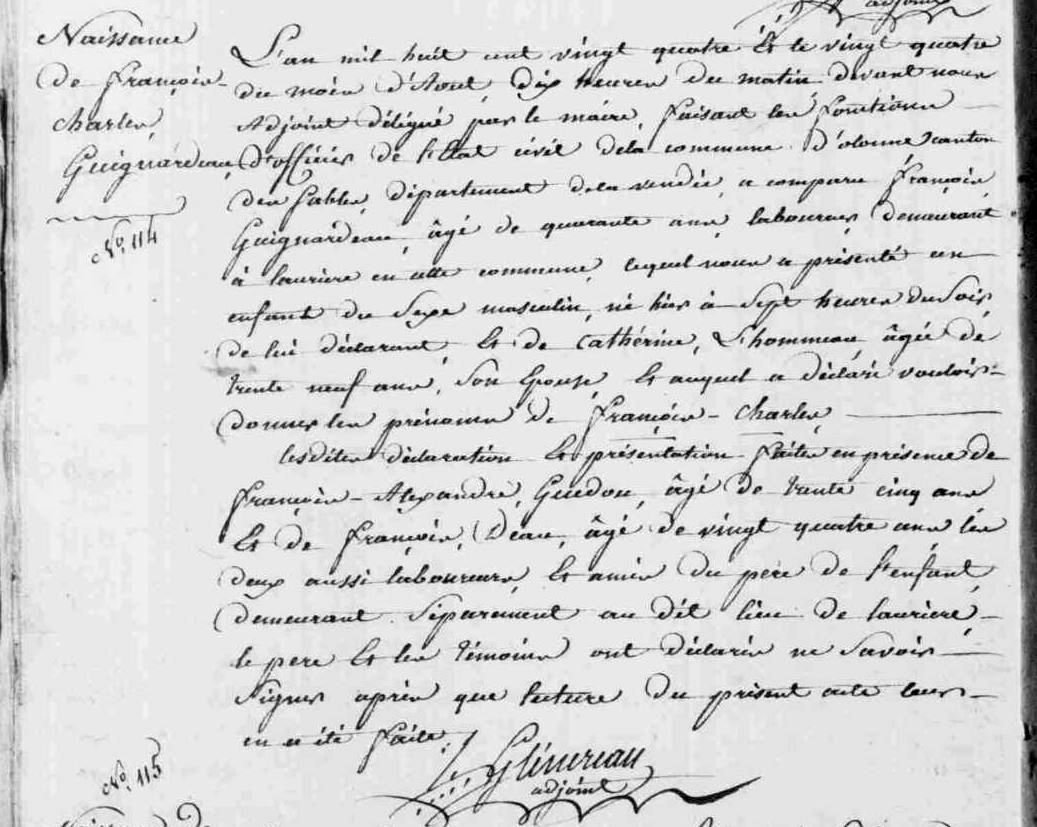 adjoint
Naissance
de françois
charles
Guignardeau
N.º 114
L'an mil huit cent vingt quatre Et le vingt quatre
du mois d'Aout, dix heures du matin devant nous
Adjoint délégué par le maire, faisant les fonctions
d'officier de l'Etat civil de la commune d'olonne canton
des sables, département de la vendée, a comparu françois
Guignardeau, âgé de quarante ans, laboureur demeurant
à laurière en cette commune, lequel nous a présenté un
enfant du Sexe masculin, né hier à Sept heures du Soir
de lui déclarant, Et de Cathérine, L'hommeau, âgée de
trente neuf ans, Son Epouse, Et auquel a déclaré vouloir
donner les prénoms de François-Charles
lesdites déclaration Et présentation faites en présence de
françois-Alexandre, Guédon, âgé de trente cinq ans
Et de françois, Déau, âgé de vingt quatre ans les
deux aussi laboureurs, Et amis du père de l'enfant
demeurant Séparément au dit lieu de laurière,
le pere Et les témoins ont déclarés ne Savoir
Signer après que lecture du présent acte leur
en a été faite
Glénereau
adjoint
N.º 115